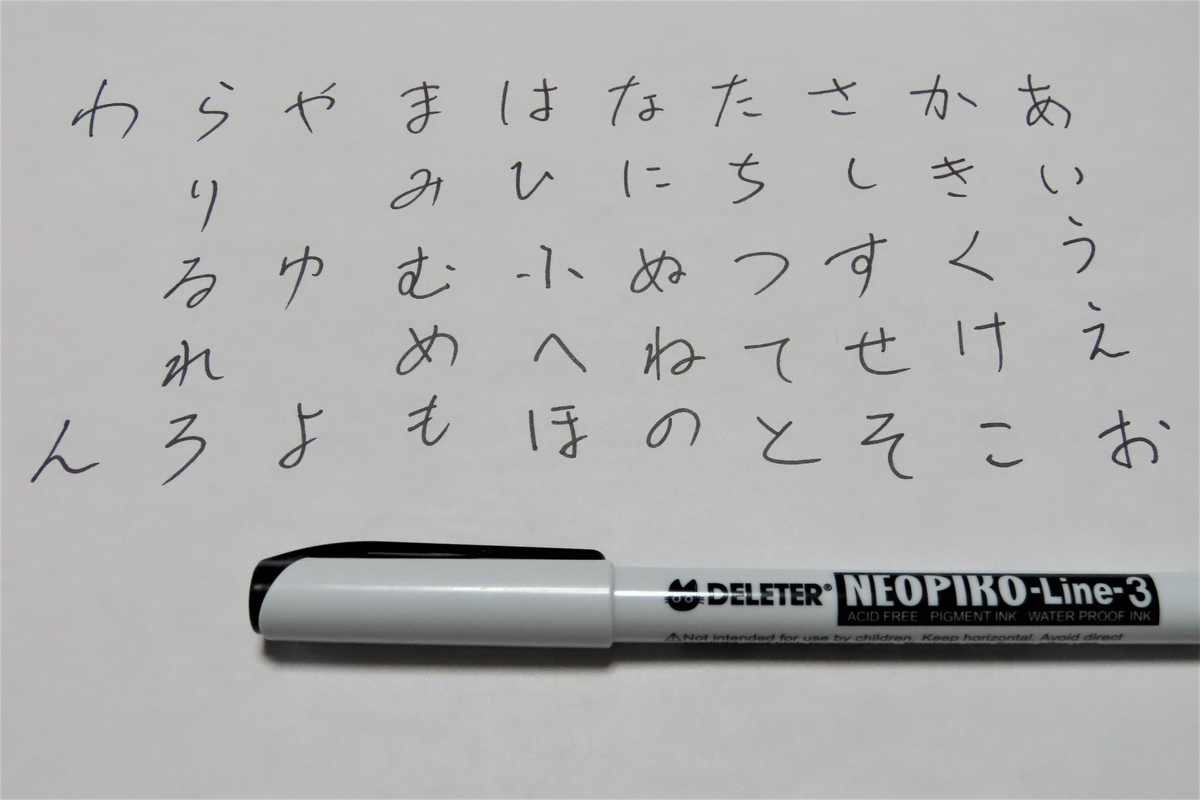 あいうえお
かきくけこ
さしすせそ
たちつてと
なにぬねの
はひふへほ
まみむめも
やゆよ
らりるれろ
わん
DELETER® NEOPIKO-Line-3
ACID FREE PIGMENT INK WATER PROOF INK
⚠Not intended for use by children. Keep horizontal. Avoid direct